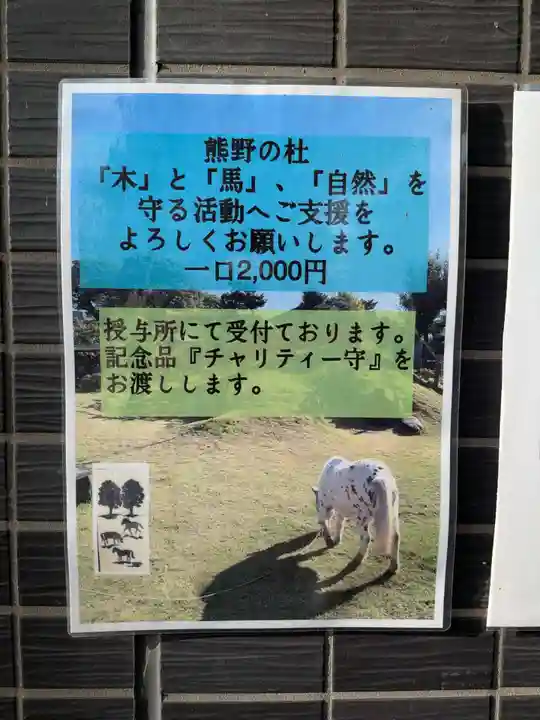 熊野の杜
「木」と「馬」、「自然」を
守る活動へご支援を
よろしくお願いします。
一口2,000円
授与所にて受付ております。
記念品『チャリティー守』を
お渡しします。